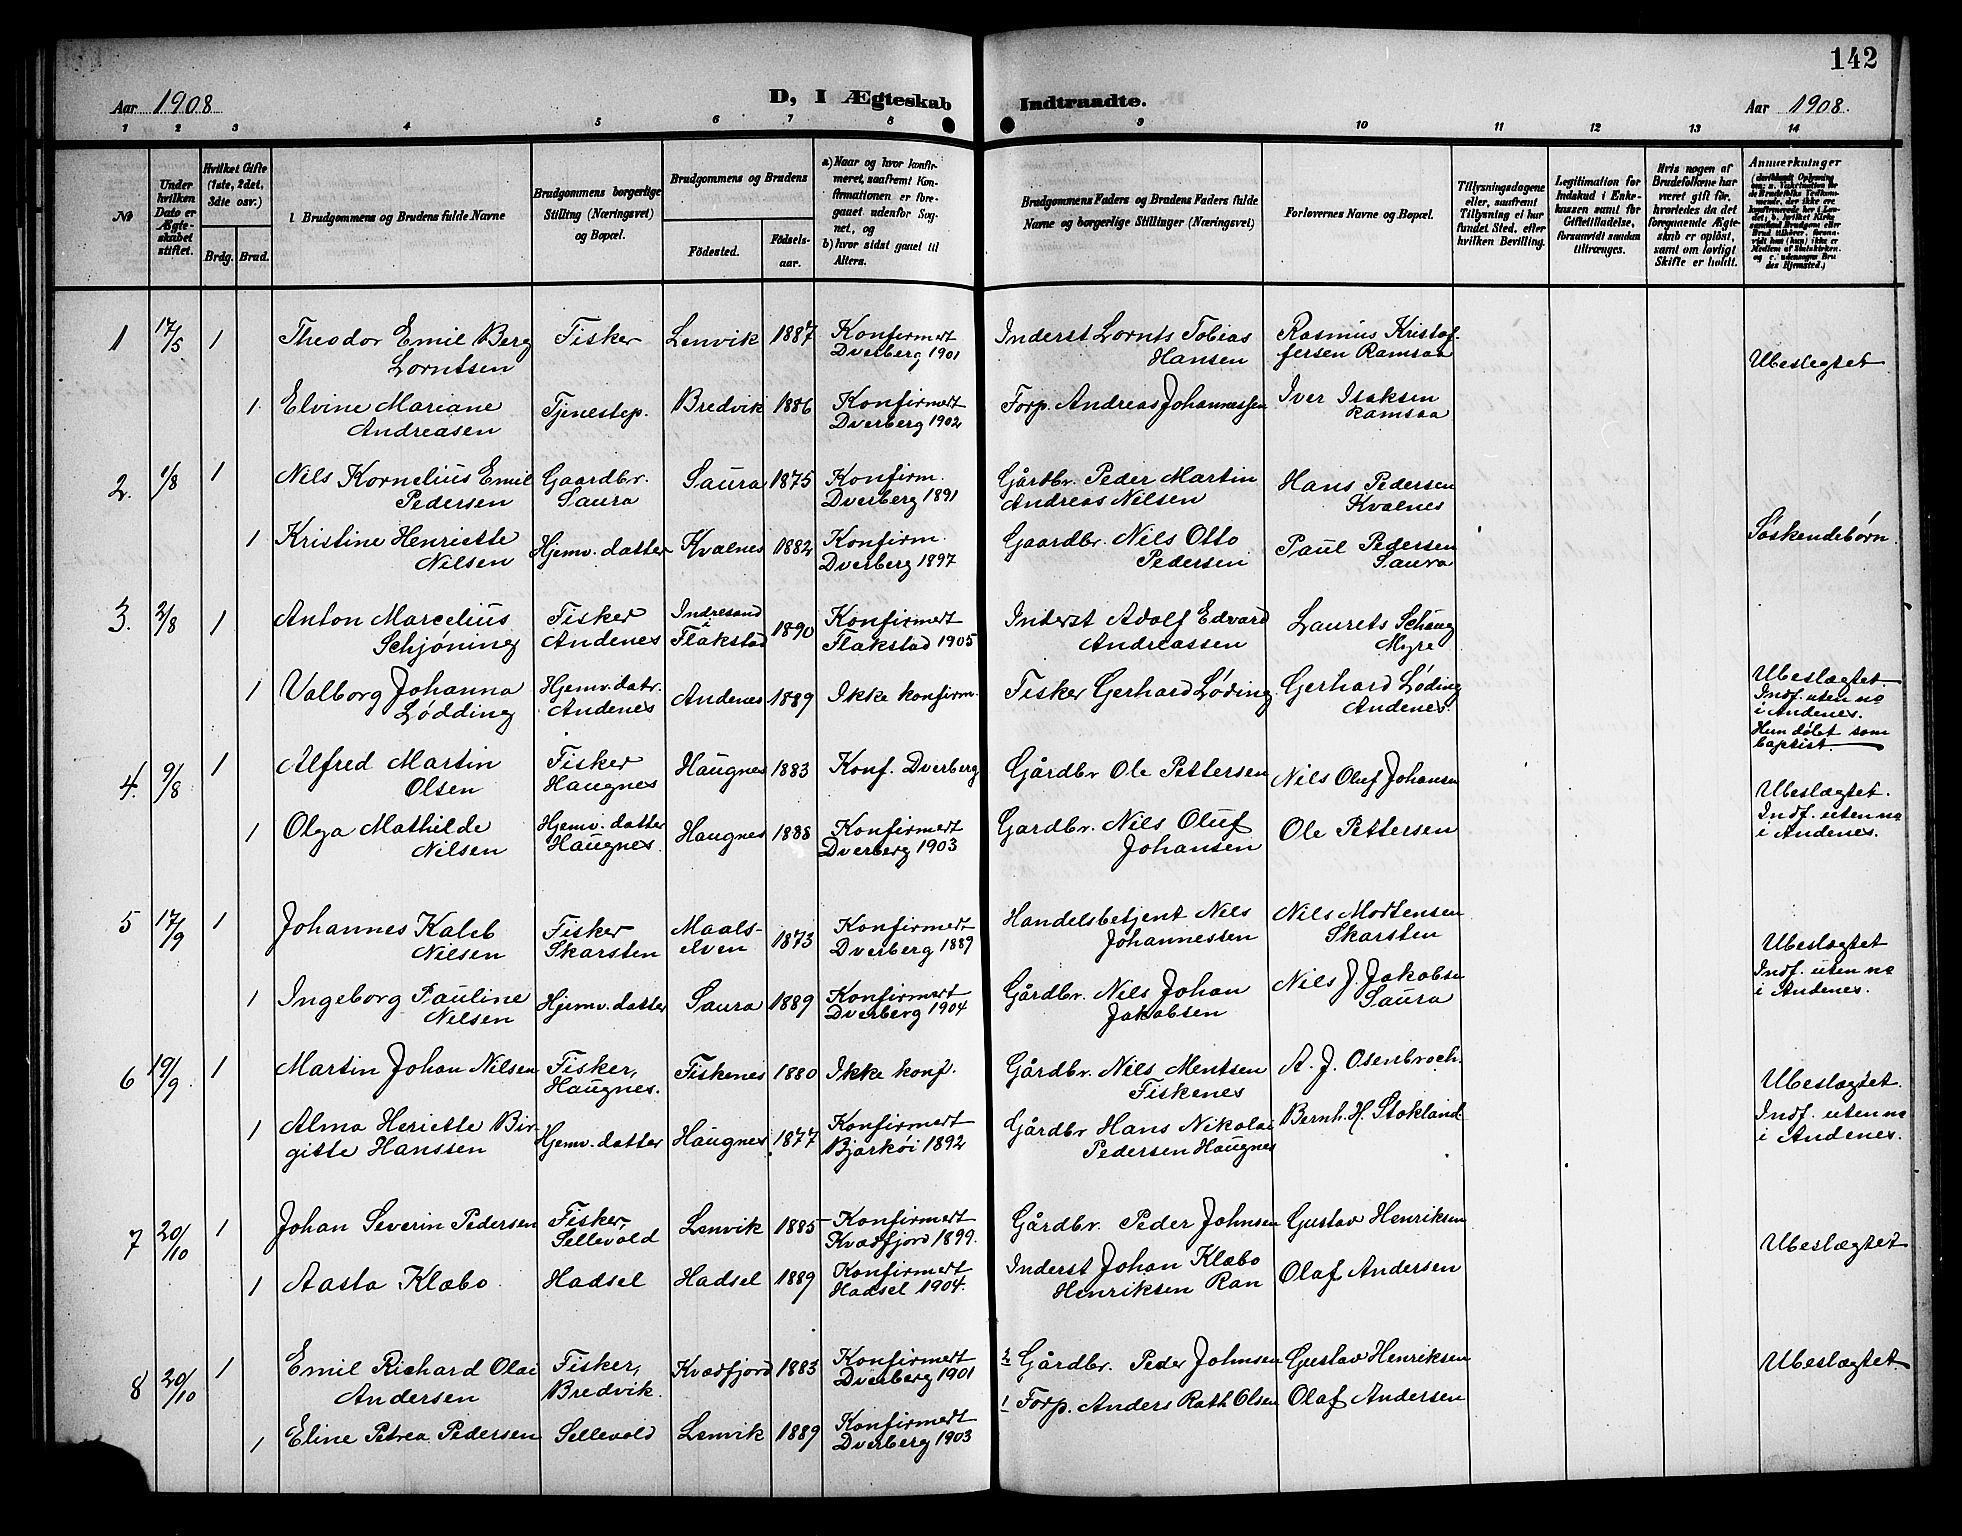 142
Aar 1908
D, I Ægteskab Indtraadte.
Aar 1908.
1 2 3 4 5 6 7 8 9 10 11 12 13 14
№
Under hvilken Dato er Ægteskabet stiftet.
Hvilket Gifte (1ste, 2det, 3die osv.)
Brdg. Brud.
1. Brudgommens og Brudens fulde Navne
Brudgommens borgerlige Stilling (Næringsvei) og Bopæl.
Brudgommens og Brudens
Födested.
Födselsaar.
a) Naar og hvor konfirmeret, saafremt Konfirmationen er foregaaet udenfor Sognet, og
b) hvor sidst gaaet til Alters.
Brudgommens Faders og Brudens Faders fulde Navne og borgerlige Stillinger (Næringsvei)
Forlovernes Navne og Bopæl.
Tillysningsdagene eller, saafremt Tillysning ei har fundet Sted, efter hvilken Bevilling.
Legitimation for Indskud i Enkekassen samt for Giftetilladelse, forsaavidt saadan tiltrænges.
Hvis nogen af Brudefolkene har været gift før, hvorledes da det foregaaende Ægteskab er opløst, samt om lovligt Skifte er holdt.
Anmerkninger
1 17/5 1 Theodor Emil Berg Lorntsen Fisker Lenvik 1887 Konfirmert Dverberg 1901 Inderst Lornts Tobias Hansen Rasmus Kristoffersen Ramsaa
1 Elvine Mariane Andreasen Tjenestep. Bredvik 1886 Konfirmert Dverberg 1902 Forp. Andreas Johannessen Iver Isaksen Ramsaa
Ubeslegtet
2. 1/8 1 Nils Kornelius Emil Pedersen Gaardbr. Saura Saura 1875 Konfirm. Dverberg 1891 Gårdbr. Peder Martin Andreas Nilsen Hans Pedersen Kvalnes
1 Kristine Henriette Nilsen Hjemv. datter Kvalnes 1882 Konfirm. Dverberg 1897 Gaardbr. Nils Otto Pedersen Paul Pedersen Saura
Søskendebørn
3. 2/8 1 Anton Marcelius Schjøning Fisker Andenes Indresand i Flakstad 1890 Konfirmert Flakstad 1905 Inderst Adolf Edvard Andreassen Laurets Schaug Myre
1 Valborg Johanna Lødding Hjemv. datr. Andenes Andenes 1889 Ikke konfirm. Fisker Gerhard Løding Gerhard Løding Andenes.
Ubeslægtet.
Indf. uten no
i Andenes.
Hun døbt som
baptist.
4. 9/8 1 Alfred Martin Olsen Fisker Haugnes Haugnes 1883 Konf. Dverberg Gårdbr Ole Pettersen Nils Oluf Johansen
1 Olga Mathilde Nilsen Hjemv. datter Haugnes. Haugnes 1888 Konfirmert Dverberg 1903 Gardbr. Nils Oluf Johansen Ole Pettersen
Ubeslægtet.
Indf. uten no
i Andenes.
5 17/9 1 Johannes Kaleb Nilsen Fisker Skarsten Maalselven 1873 Konfirmert Dverberg 1889 Handelsbetjent Nils Johannessen Nils Mortensen Skarsten
1 Ingeborg Pauline Nilsen Hjemv. datter Saura 1889 Konfirmert Dverberg 1904 Gårdbr. Nils Johan Jakobsen Nils J. Jakobsen Saura
Ubeslægtet
Indf. uten no
i Andenes.
6 19/9 1 Martin Johan Nilsen Fisker, Haugnes. Fiskenes 1880 Ikke konf. Gårdbr. Nils Mentsen Fiskenes A. J. Osenbroch.
1 Alma Heriette Birgitte Hanssen Hjemv. datter Haugnes 1877 Konfirmert Bjarkøi 1892 Gårdbr Hans Nikolai Pedersen Haugnes Bernh. H. Stokland.
Ubeslægtet.
Indf. uten no
i Andenes.
7 20/10 1 Johan Severin Pedersen Fisker, Sellevold Lenvik 1885 Konfirmert Kvædfjord 1899. Gårdbr. Peder Johnsen Gustav Henriksen
1 Aasta Klæbo Hadsel Hadsel 1889 Konfirmert Hadsel 1904. Inderst Johan Klæbo Henriksen Ran Olaf Andersen
Ubeslægtet
8 20/10 1 Emil Richard Olai Andersen Fisker, Bredvik. Kvædfjord 1883 Konfirmert Dverberg 1901 2 Gårdbr. Peder Johnsen Gustav Henriksen
1 Forp. Anders Rath Olsen Olaf Andersen
1 Eline Petrea Pedersen Sellevold Lenvik 1889 Konfirmert Dverberg 1903
Ubeslægtet.